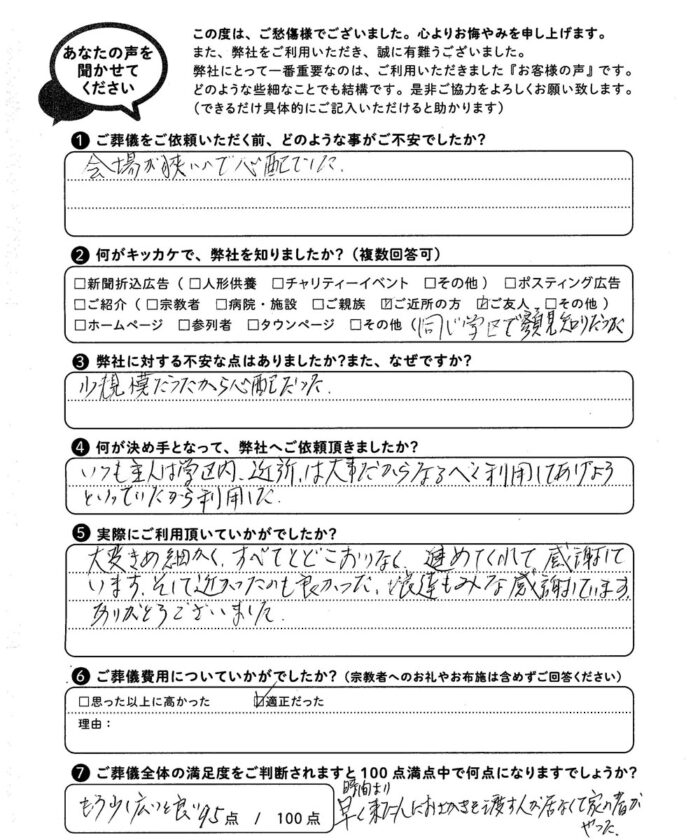 あなたの声を
聞かせて
ください
この度は、ご愁傷様でございました。心よりお悔やみを申し上げます。
また、弊社をご利用いただき、誠に有難うございました。
弊社にとって一番重要なのは、ご利用いただきました『お客様の声』です。
どのような些細なことでも結構です。是非ご協力をよろしくお願い致します。
(できるだけ具体的にご記入いただけると助かります)
❶ ご葬儀をご依頼いただく前、どのような事がご不安でしたか?
会場が狭いので心配でした.
❷ 何がキッカケで、弊社を知りましたか?(複数回答可)
□新聞折込広告(□人形供養 □チャリティーイベント □その他) □ポスティング広告
□ご紹介(□宗教者 □病院・施設 □ご親族 ☑ご近所の方 ☑ご友人 □その他)
□ホームページ □参列者 □タウンページ □その他(同じ学区で顔見知りだった
❸ 弊社に対する不安な点はありましたか?また、なぜですか?
小規模だったから心配だった.
❹ 何が決め手となって、弊社へご依頼頂きましたか?
いつも主人は学区内、近所、は大事だからなるべく利用してあげよう
といっていたから利用した.
❺ 実際にご利用頂いていかがでしたか?
大変きめ細かく、すべてとどこおりなく、進めてくれて感謝して
います、そして近かったのも良かった、娘達もみんな感謝しています、
ありがとうございました.
❻ ご葬儀費用についていかがでしたか?(宗教者へのお礼やお布施は含めずご回答ください)
□思った以上に高かった ☑適正だった
理由:
❼ ご葬儀全体の満足度をご判断されますと100点満点中で何点になりますでしょうか?
もう少し広いと良い 95点 / 100点
時間より
早く来た人におはがきを渡す人が居なくて家の者が
やった.